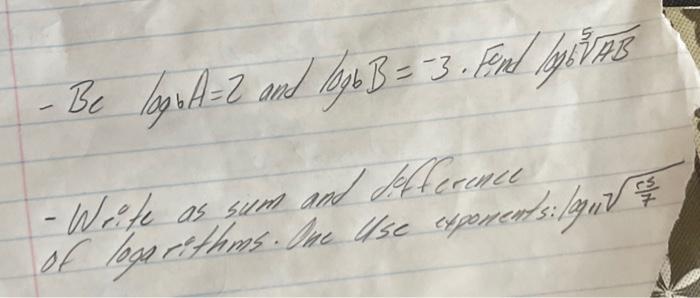 - Be log_b A = 2 and log_b B = -3. Find log_b ⁵√AB
- Write as sum and difference
of logarithms. One Use exponents: log₁₁ √(rs/7)